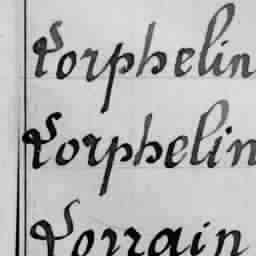 Lorphelin
Lorphelin
Lorrain